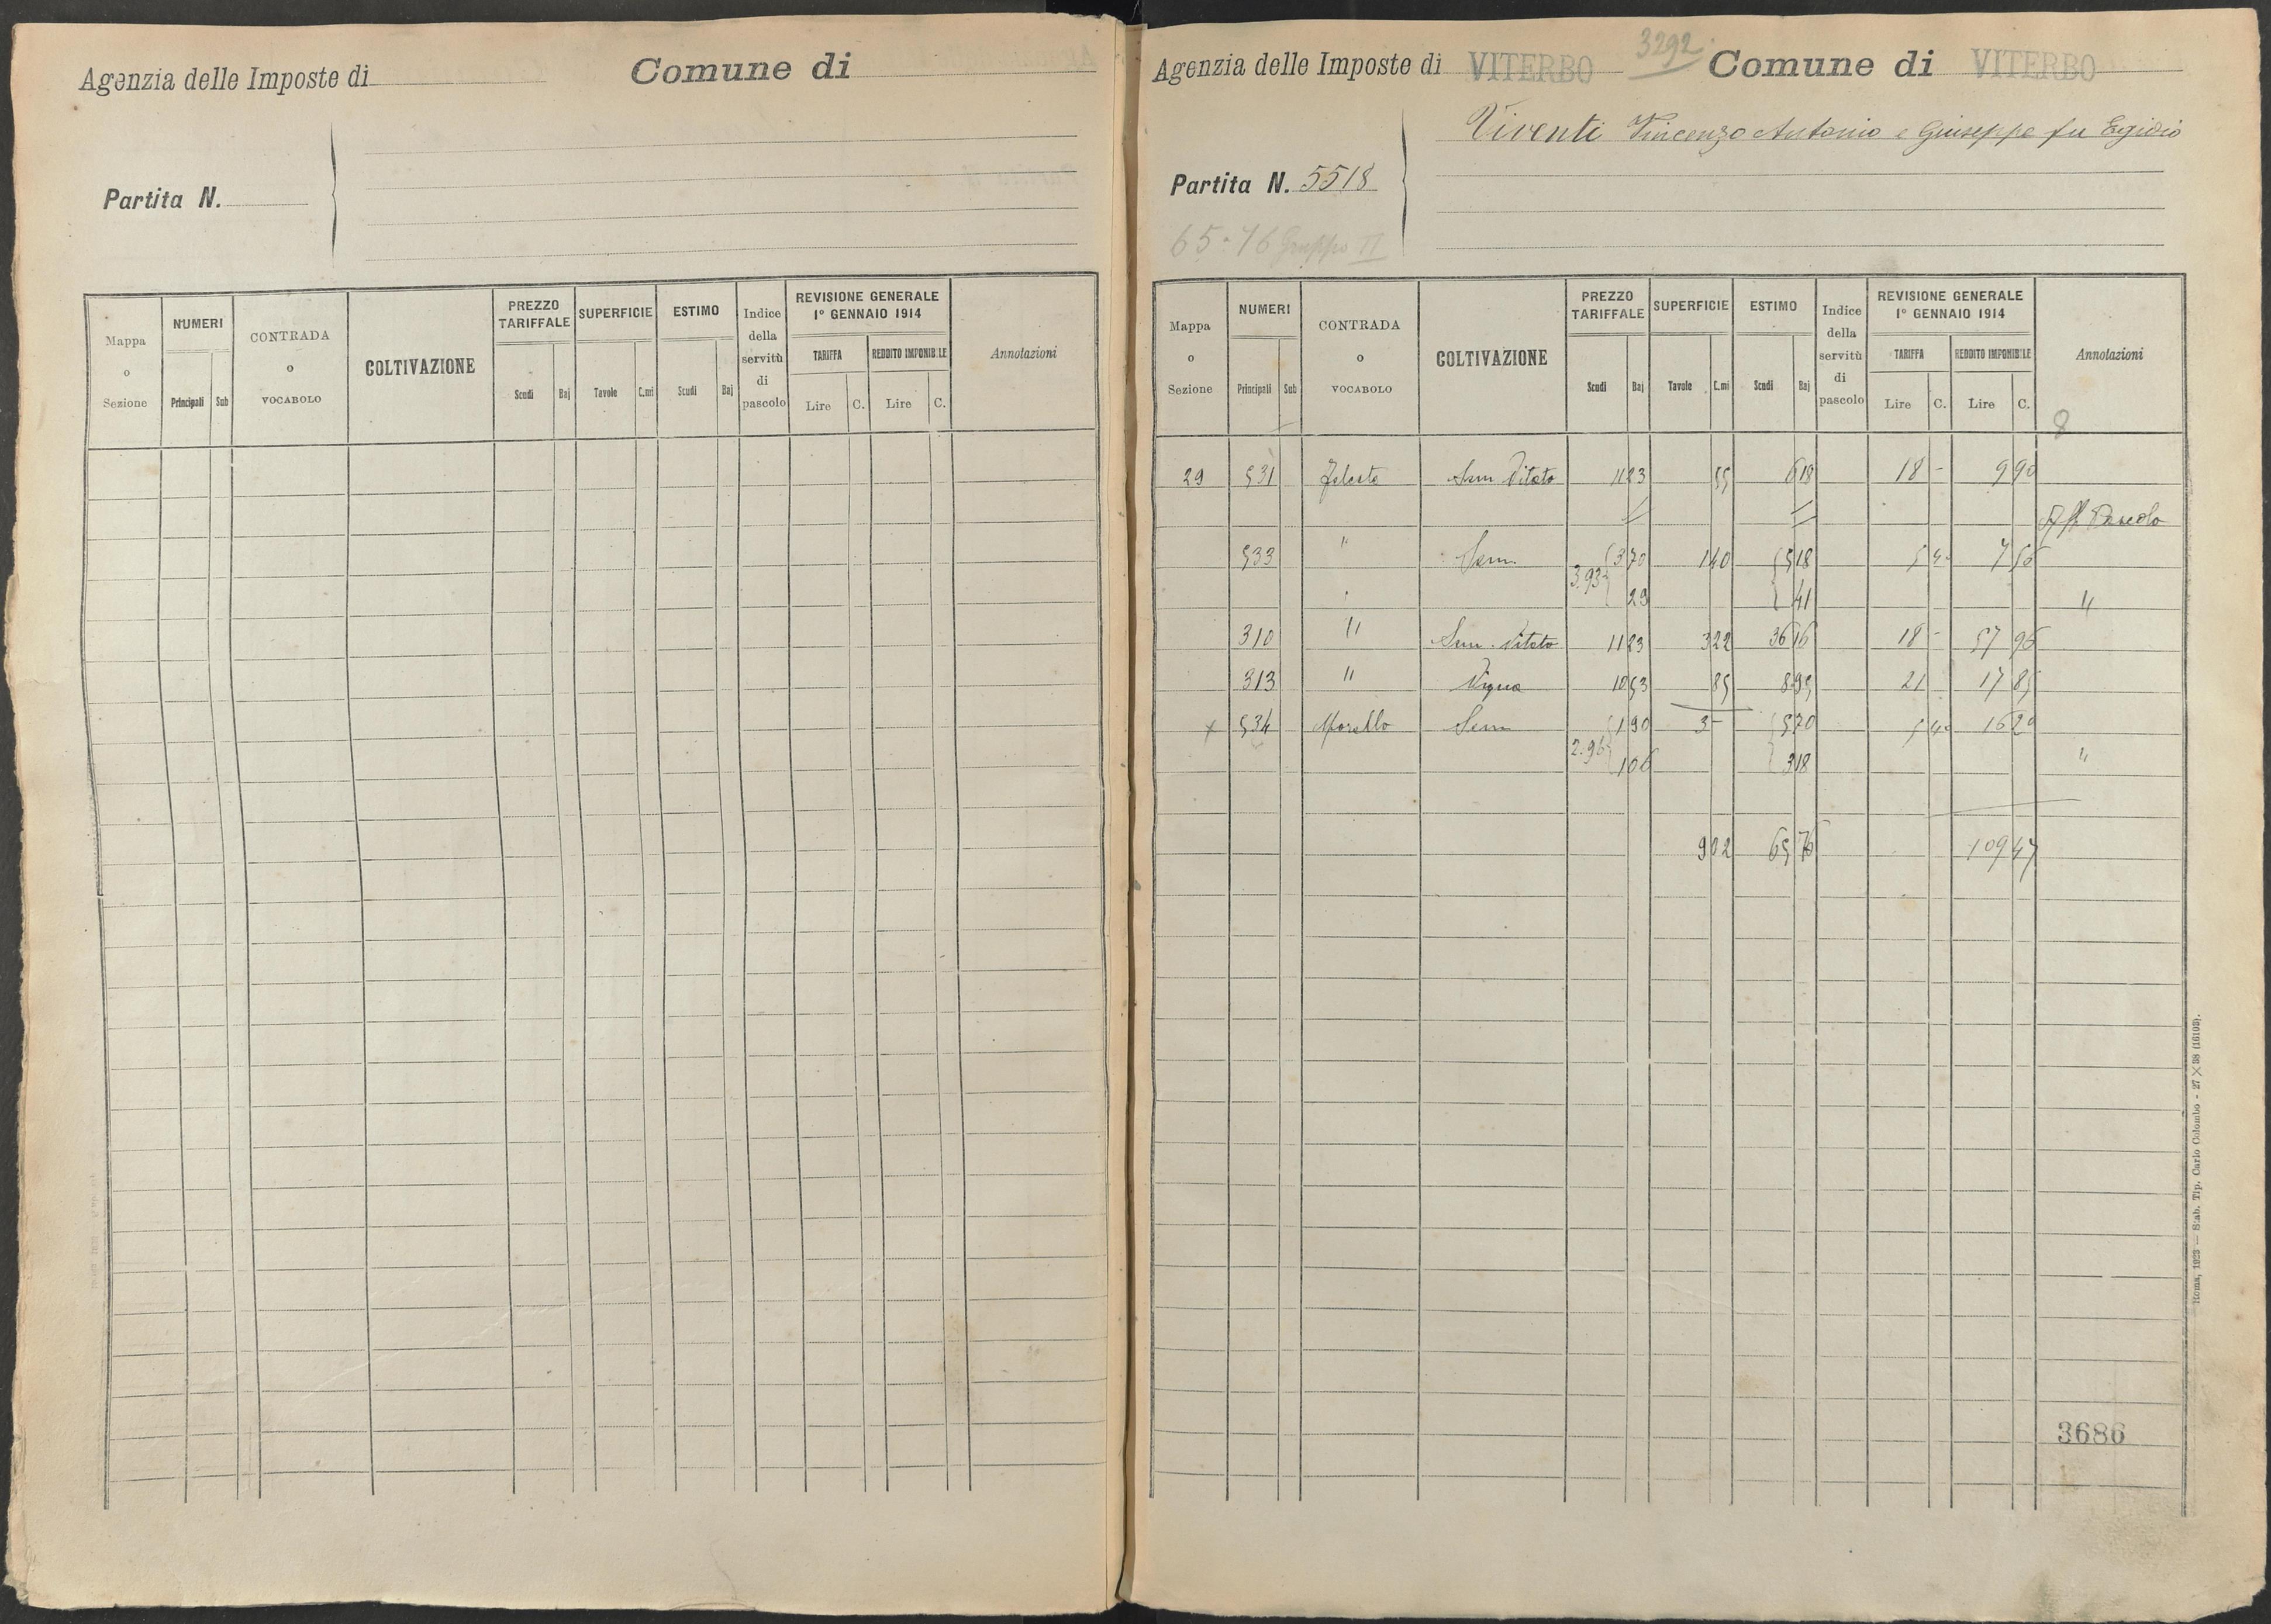 Agenzia delle Imposte di
Comune di
Partita N.
Mappa o Sezione
NUMERI
Principali Sub
CONTRADA o VOCABOLO
COLTIVAZIONE
PREZZO TARIFFALE
Scudi Baj
SUPERFICIE
Tavole C.mi
ESTIMO
Scudi Baj
Indice della servitù di pascolo
REVISIONE GENERALE 1° GENNAIO 1914
TARIFFA
Lire C.
REDDITO IMPONIBILE
Lire C.
Annotazioni
3292
Agenzia delle Imposte di VITERBO Comune di VITERBO
Viventi Vincenzo Antonio e Giuseppe fu Egidio
Partita N. 5518
65:76 Gruppo II
Mappa o Sezione
NUMERI
Principali Sub
CONTRADA o VOCABOLO
COLTIVAZIONE
PREZZO TARIFFALE
Scudi Baj
SUPERFICIE
Tavole C.mi
ESTIMO
Scudi Baj
Indice della servitù di pascolo
REVISIONE GENERALE 1° GENNAIO 1914
TARIFFA
Lire C.
REDDITO IMPONIBILE
Lire C.
Annotazioni
8
29 531 Sem Vitato 11 23 55 6 18 18 - 9 90
Pascolo
533 " Sem 3 70 1 40 5 18 5 40 7 56
3.93 23 41 "
310 " Sem. Vitato 11 23 3 22 36 16 18 - 57 96
313 " Vigna 10 53 85 8 95 21 17 85
x 534 Morello Sem 1 90 3 - 5 70 5 40 16 20
2.96 1 06 3 18 "
9 02 65 76 109 47
3686
Roma, 1923 — Stab. Tip. Carlo Colombo - 27 X 38 (16103).